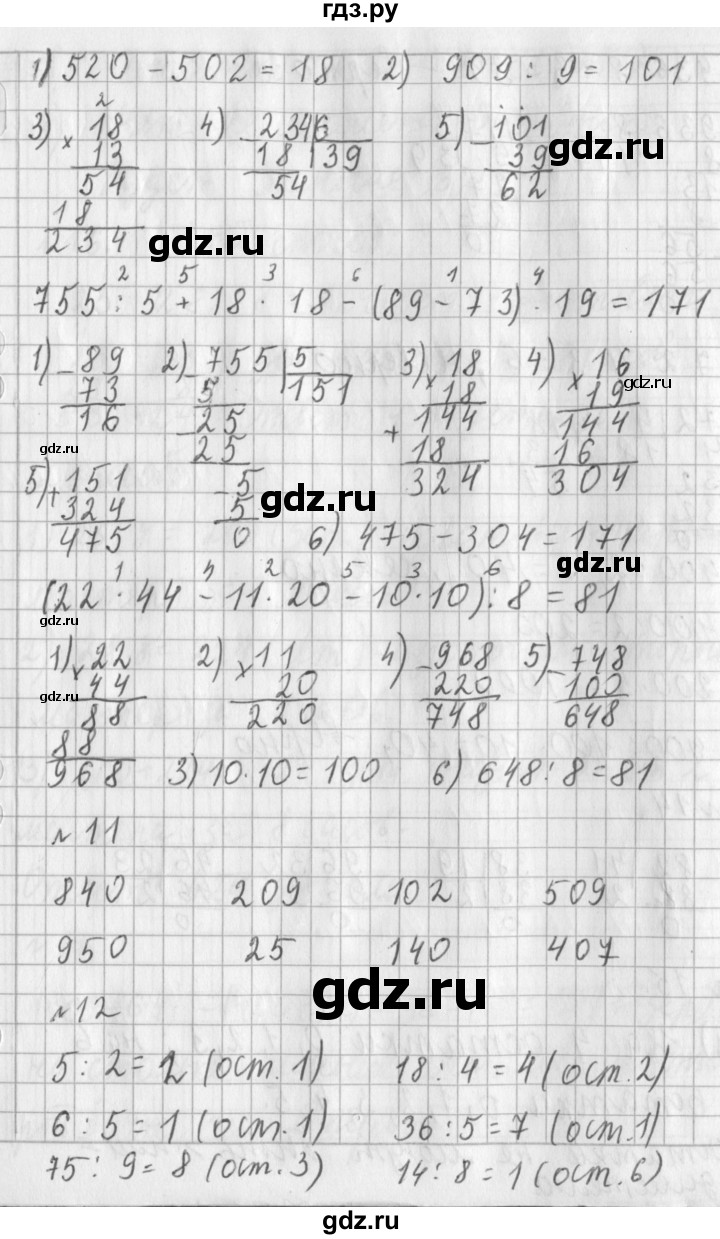 гдз.ру
1) 520 - 502 = 18 2) 909 : 9 = 101
2
3) × 18 4) - 2346 5) - 101
13 18 39 39 gdz.ru
54 54 62
18
234 gdz.ru
2 5 3 6 1 4
755 : 5 + 18 · 18 - (89 - 73) · 19 = 171
1) - 89 2) - 755 5 3) × 18 4) × 16
73 5 151 18 19 gdz.ru
16 - 25 144 144
gdz.ru 25 + 18 16
5) + 151 - 5 324 304
324 5 gdz.ru
475 0 6) 475 - 304 = 171
1 4 2 5 3 6 gdz.ru
(22 · 44 - 11 · 20 - 10 · 10) : 8 = 81
gdz.ru
1) × 22 2) × 11 4) - 968 5) - 748
gdz.ru 44 20 220 100
88 220 748 648
88
968 3) 10 · 10 = 100 6) 648 : 8 = 81
№ 11
840 209 102 509
950 25 140 407
gdz.ru
№ 12
5 : 2 = 2 (ост. 1) 18 : 4 = 4 (ост. 2)
6 : 5 = 1 (ост. 1) 36 : 5 = 7 (ост. 1)
75 : 9 = 8 (ост. 3) 14 : 8 = 1 (ост. 6)
gdz.ru